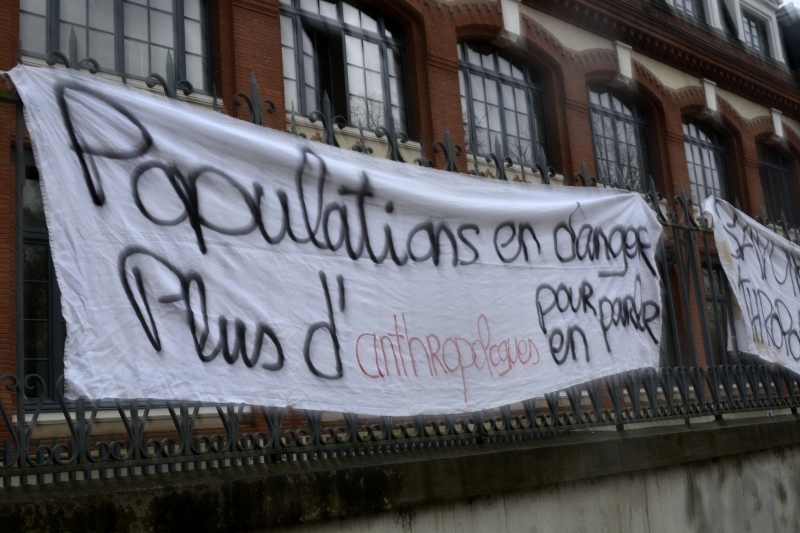 Populations en danger
Plus d'anthropologues
pour
en parler